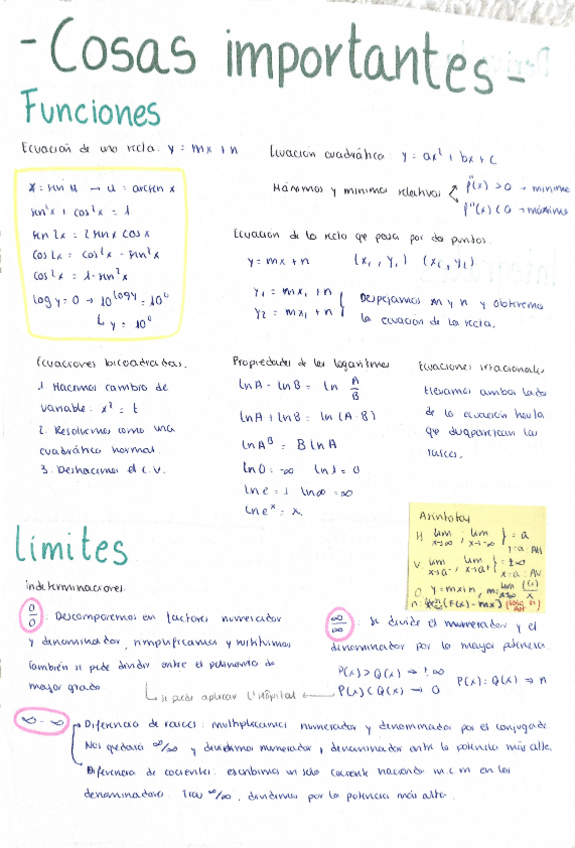 - Cosas importantes -
Funciones
Ecuación de una recta: y = mx + n
Ecuación cuadrática: y = ax² + bx + c
Máximos y mínimos relativos f''(x) > 0 → mínimo
f''(x) < 0 → máximo
x = sin u → u = arcsen x
sen²x + cos²x = 1
sen 2x = 2 sen x cos x
cos 2x = cos²x - sen²x
cos²x = 1 - sen²x
log y = 0 → 10^log y = 10⁰
↳ y = 10⁰
Ecuación de la recta que pasa por dos puntos.
y = mx + n (x₁, y₁) (x₂, y₂)
y₁ = mx₁ + n
y₂ = mx₁ + n
Despejamos m y n y obtenemos
la ecuación de la recta.
Ecuaciones bicuadradas.
1. Hacemos cambio de
variable: x² = t
2. Resolvemos como una
cuadrática normal.
3. Deshacemos el c.v.
Propiedades de los logaritmos
ln A - ln B = ln A/B
ln A + ln B = ln (A·B)
ln A^B = B ln A
ln 0 = -∞ ln 1 = 0
ln e = 1 ln ∞ = ∞
ln e^x = x
Ecuaciones irracionales
Elevamos ambos lados
de la ecuación hasta
que desaparezcan las
raíces.
Asíntotas
H lim x→∞ ; lim x→-∞ } = a
y = a: AH
V. lim x→a⁻ ; lim x→a⁺ } = ±∞
x = a: AV
O. y = mx + n, m = lim f(x)/x
n: lim (f(x) - mx)
Límites
Indeterminaciones.
0/0: Descomponemos en factores numerador
y denominador, simplificamos y sustituimos
También se puede dividir entre el polinomio de
mayor grado.
↳ se puede aplicar L'Hôpital ←
∞/∞: Se divide el numerador y el
denominador por la mayor potencia.
P(x) > Q(x) → ±∞
P(x) < Q(x) → 0
P(x) = Q(x) → n
∞ - ∞
Diferencia de raíces: multiplicamos numerador y denominador por el conjugado.
Nos quedará ∞/∞ y dividimos numerador y denominador entre la potencia más alta.
Diferencia de cocientes: escribimos un solo cociente haciendo m.c.m en los
denominadores. Tras ∞/∞, dividimos por la potencia más alta.